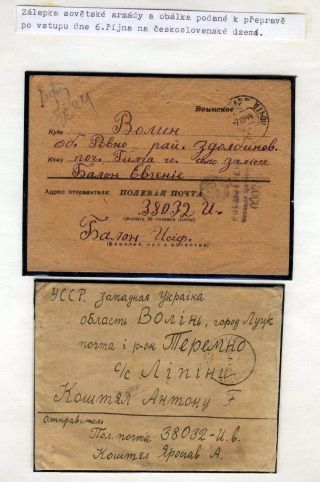 Zálepka sovětské armády a obálka podané k přepravě
po vstupu dne 6.října na československé území.
Воинское
Куда Волин
об. Ровно рай. Здолбунов.
Кому поч. Гильча с/с село залісс
Балон Євгеніє
Адрес отправителя: ПОЛЕВАЯ ПОЧТА
38032 И.
(указать № полевой почты)
Балон Иосиф.
(фамилия, имя и отчество)
УССР. Западная Україна
область Волінь, город Луцк
почта і р-он Теремно
с/с Ліпіни
Коштял Антону F
Отправитель
Пол. почта 38032-И.в.
Коштел Ярослав А.